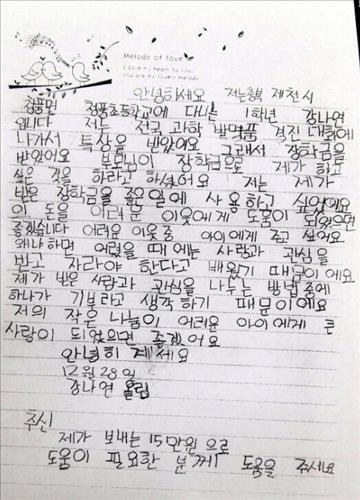 Melody of love
I give my heart to you.
You are my lovely melody
안녕하세요 저는 충북 제천시
청풍면 청풍초등학교에 다니는 1학년 강나연
입니다 저는 전국 과학 발명품 경진 대회에
나가서 특상을 받았어요 그래서 장학금을
받았어요 부모님이 장학금으로 제가 하고
싶은 것을 하라고 하셨어요 저는 제가
받은 장학금을 좋은 일에 사용하고 싶었어요
이 돈을 어려운 이웃에게 도움이 되었으면
좋겠습니다 어려운 이웃중 아이에게 주고 싶어요
왜냐하면 어렸을 때에는 사랑과 관심을
받고 자라야 한다고 배웠기 때문이에요
제가 받은 사랑과 관심을 나누는 방법 중에
하나가 기부라고 생각하기 때문이에요
저의 작은 나눔이 어려운 아이에게 큰
사랑이 되었으면 좋겠어요
안녕히 계세요
12월 28일
강나연 올림
추신
제가 보내는 15만원으로
도움이 필요한 분께 도움을 주세요